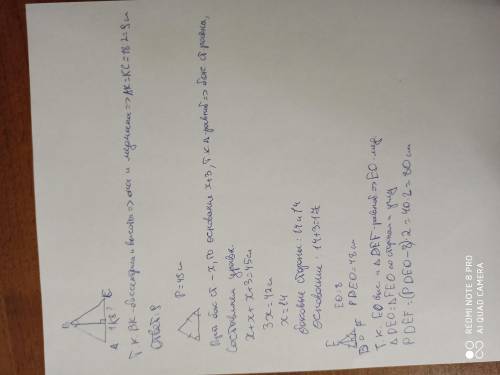 B
A K(8) C
Т к BK-биссектриса и высота => она и медиана => AK=KC=18:2=9 см
Ответ: 9
P=45 см
Пусть бок ст - x, то основание x+3, т к Δ-равноб => бок ст равны,
Составим уравн.
x+x+x+3=45 см
3x=42 см
x=14
боковые стороны: 14 и 14
основание: 14+3=17
E EO=8
D O F PDEO=48 см
Т. к. EO выс и ΔDEF-равноб => EO-мед.
ΔDEO=ΔFEO по сторонам и углу
PDEF=(PDEO-8)·2=40·2=80 см
REDMI NOTE 8 PRO
AI QUAD CAMERA